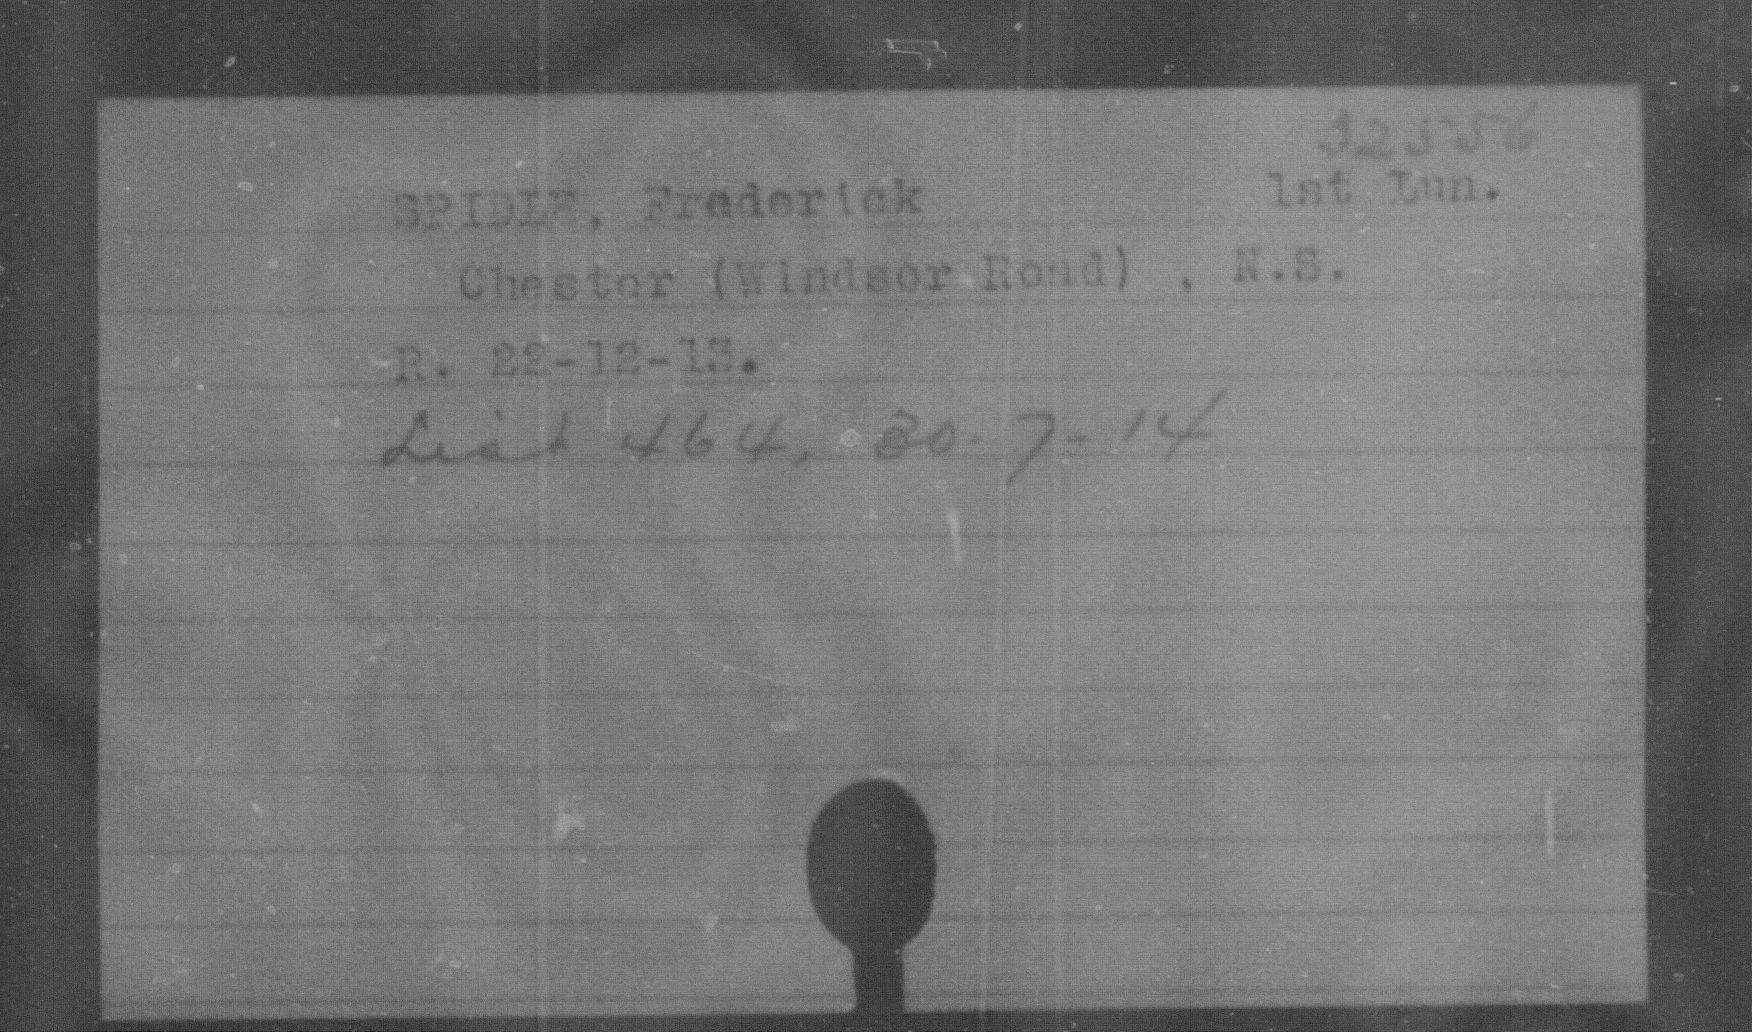 32556
SPIDLE, Frederick 1st Lun.
Chester (Windsor Road) , N.S.
R. 22-12-13.
List 464, 30-7-14